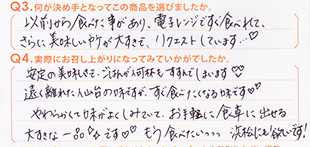 Q3.何が決め手となってこの商品を選びましたか。
以前から食べた事があり、電子レンジですぐ食べれて、
さらに美味しいヤケが大すきで、リクエストしています…♡
Q4.実際にお召し上がりになってみていかがでしたか。
安定の美味しさで、ごはんが何杯もすすんでしまいます♡
遠く離れた仙台の味ですが、すぐ食べたくなる味です♡♡
やわらかくて味がよくしみていて、お手軽に食卓に出せる
大すきな一品です♡ もう食べたいっっっ 浜松にも欲しいです!